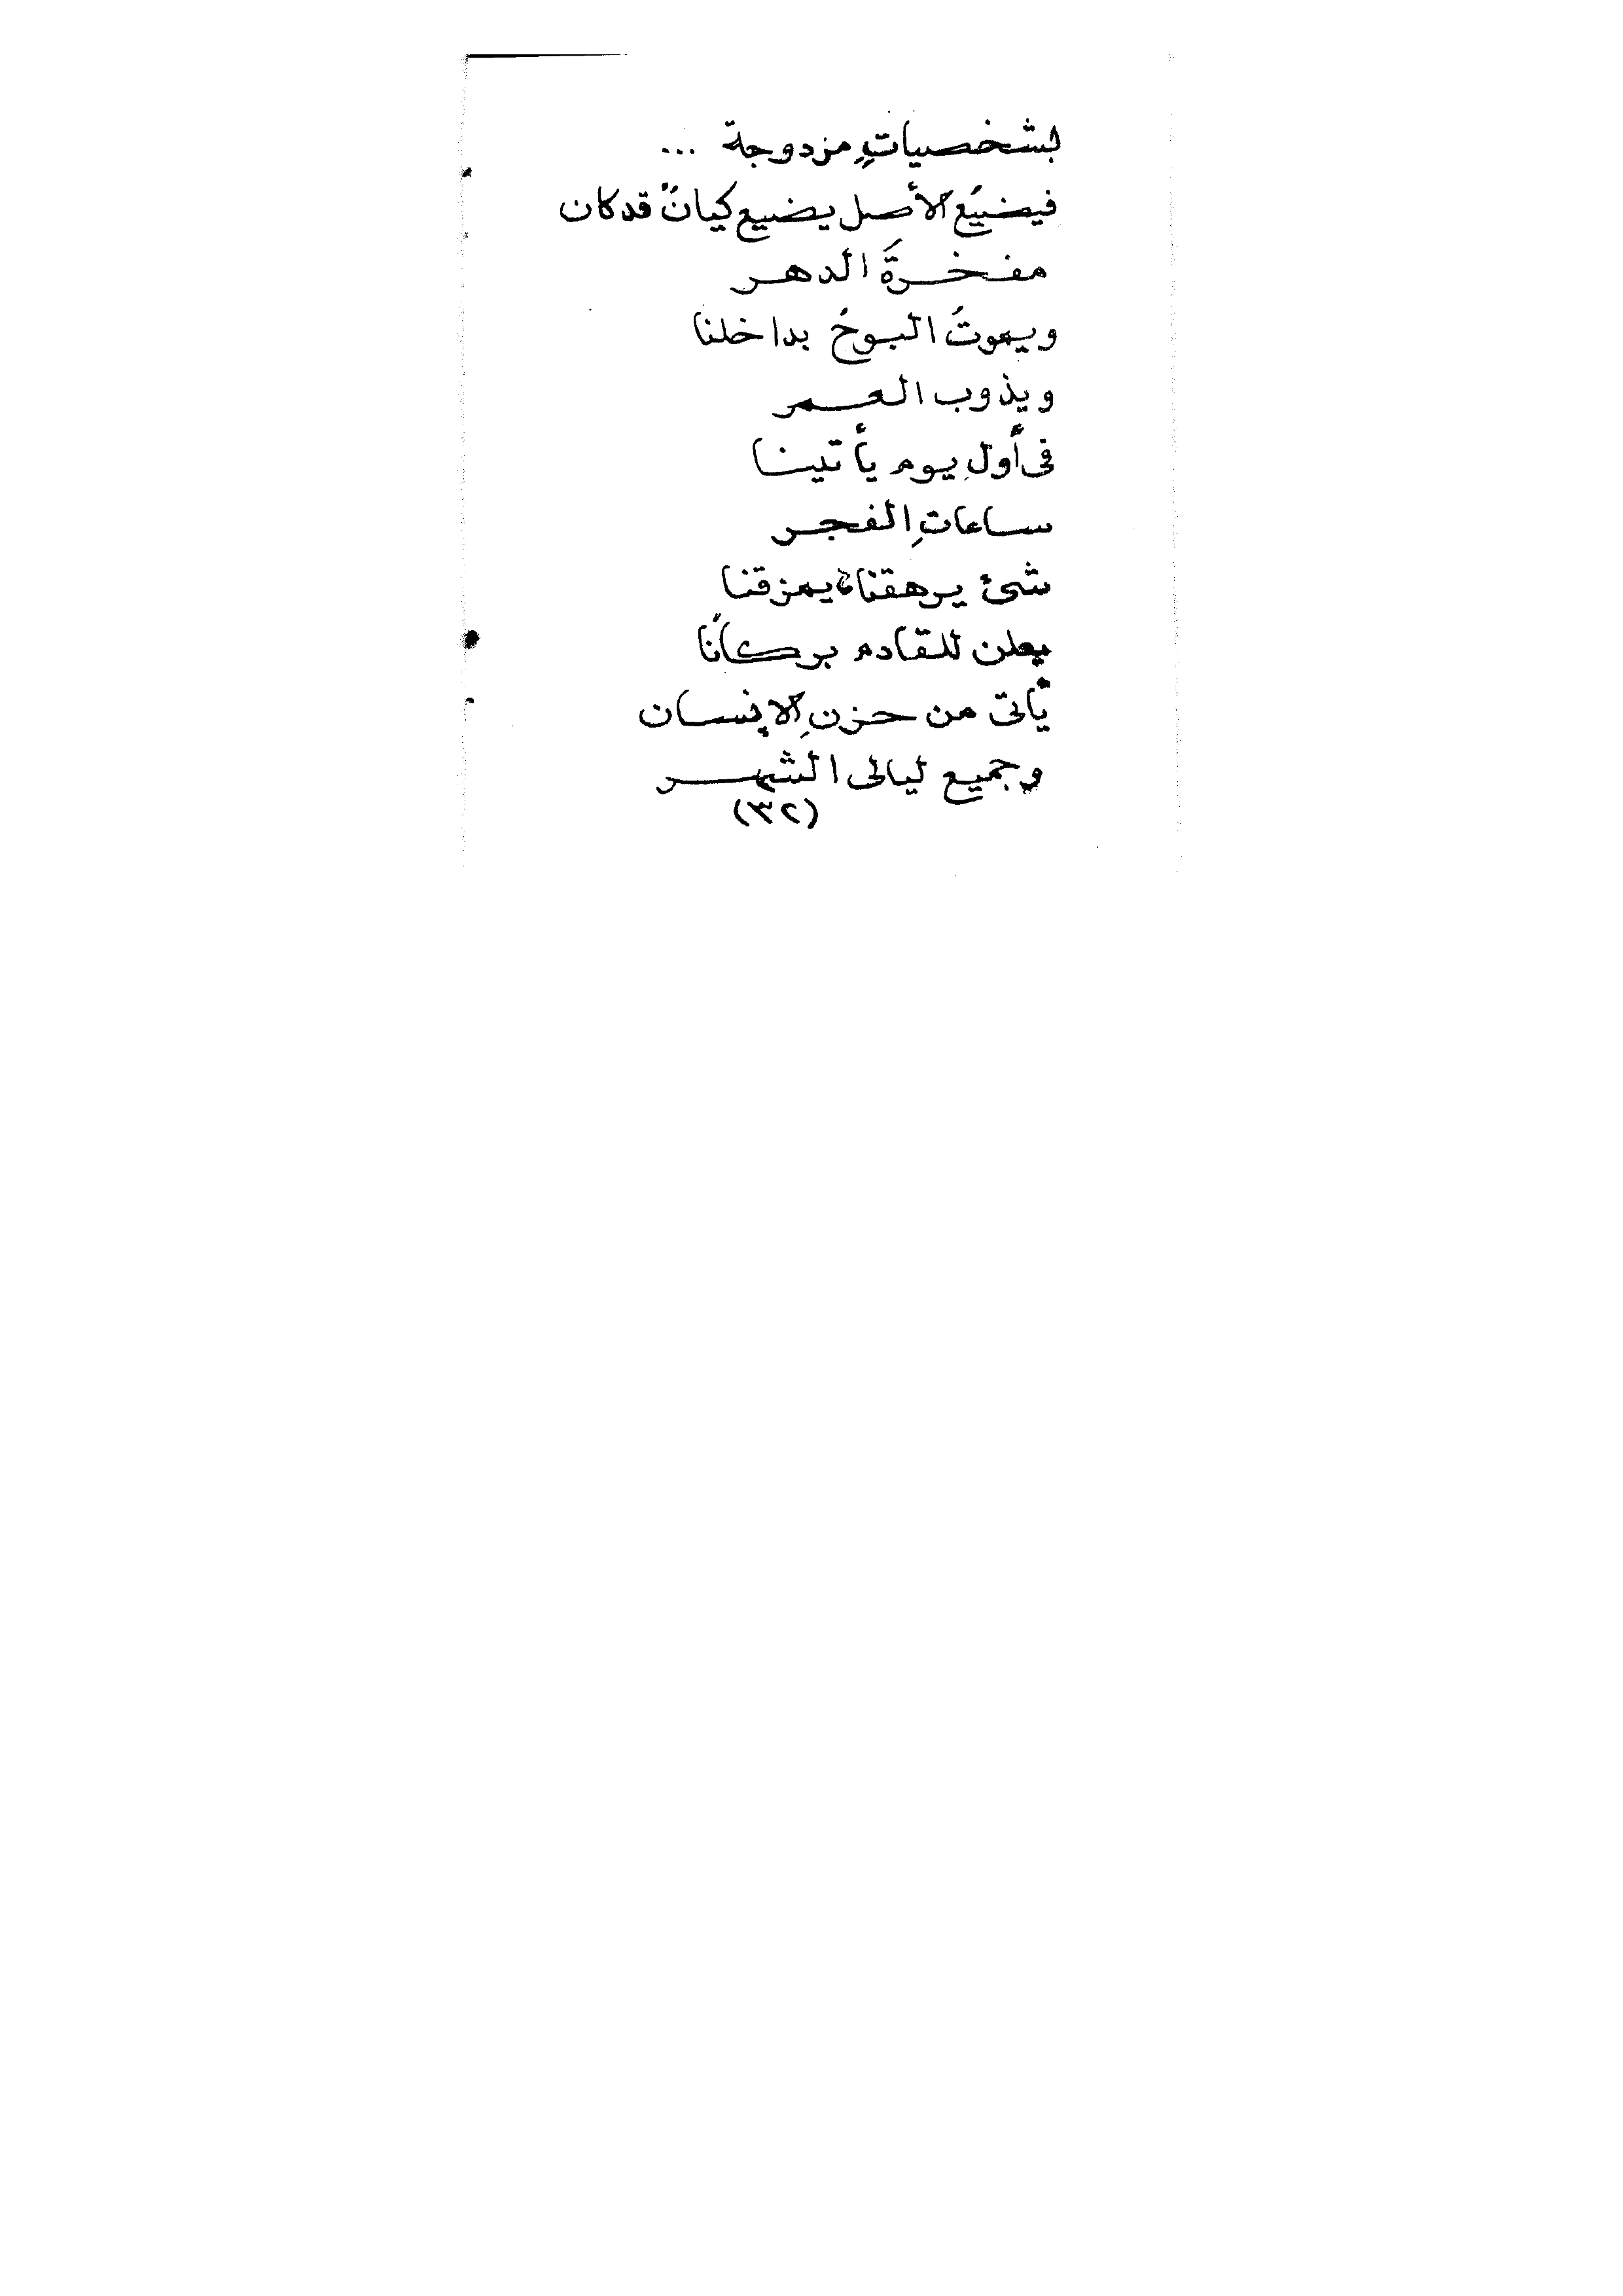 بشخصياتٍ مزدوجة ...
فيضيُع الأصل يضيع كيانٌ قد كان
مفخرةَ الدهر
ويموتُ البوحُ بداخلنا
ويذوب العمر
فى أول يوم يأتينا
ساعاتِ الفجر
شئ يرهقنا، يمزقنا
يعلن للقادم بركانًا
يأتى من حزنِ الإنسان
وجميع ليالى الشهر
(٣٢)